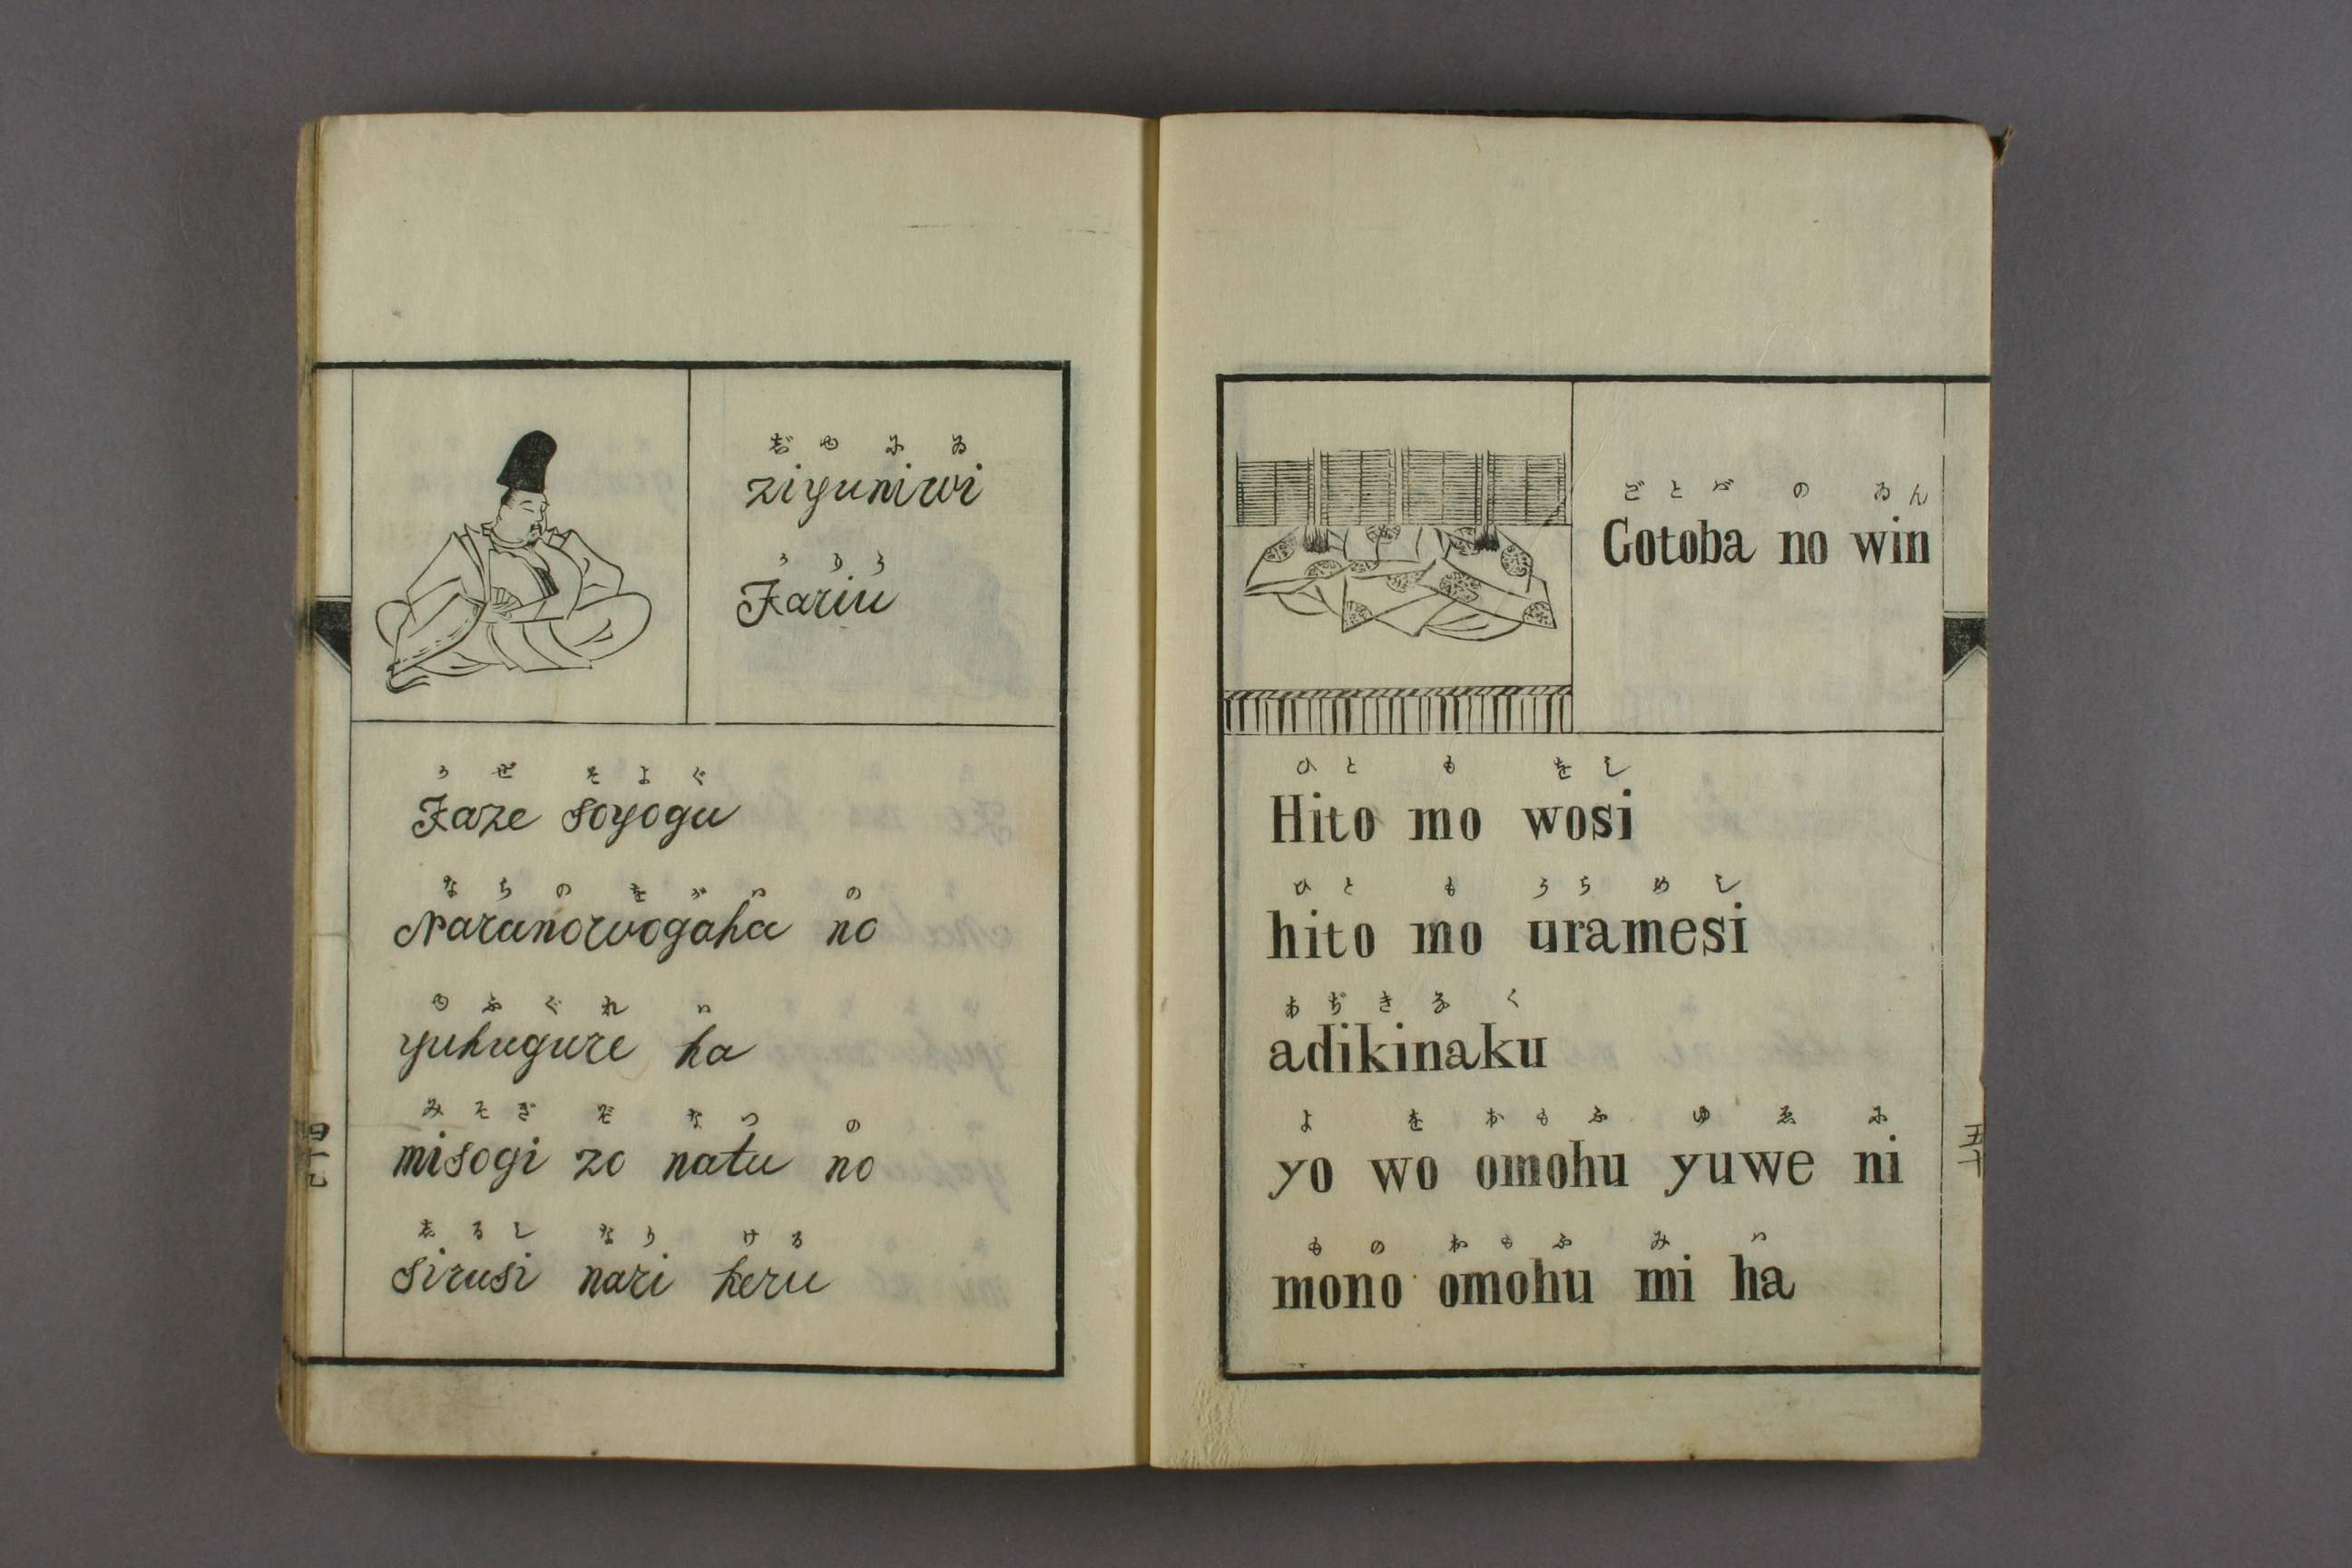 じゆにゐ
ziyuniwi
かりう
Kariu
かぜそよぐ
Kaze soyogu
ならのをがはの
Naranowogaha no
ゆふぐれは
yuhugure ha
みそぎぞなつの
misogi zo natu no
しるしなりける
sirusi nari keru
ごとばのゐん
Gotoba no win
ひともをし
Hito mo wosi
ひともうらめし
hito mo uramesi
あぢきなく
adikinaku
よをおもふゆゑに
yo wo omohu yuwe ni
ものおもふみは
mono omohu mi ha
五十